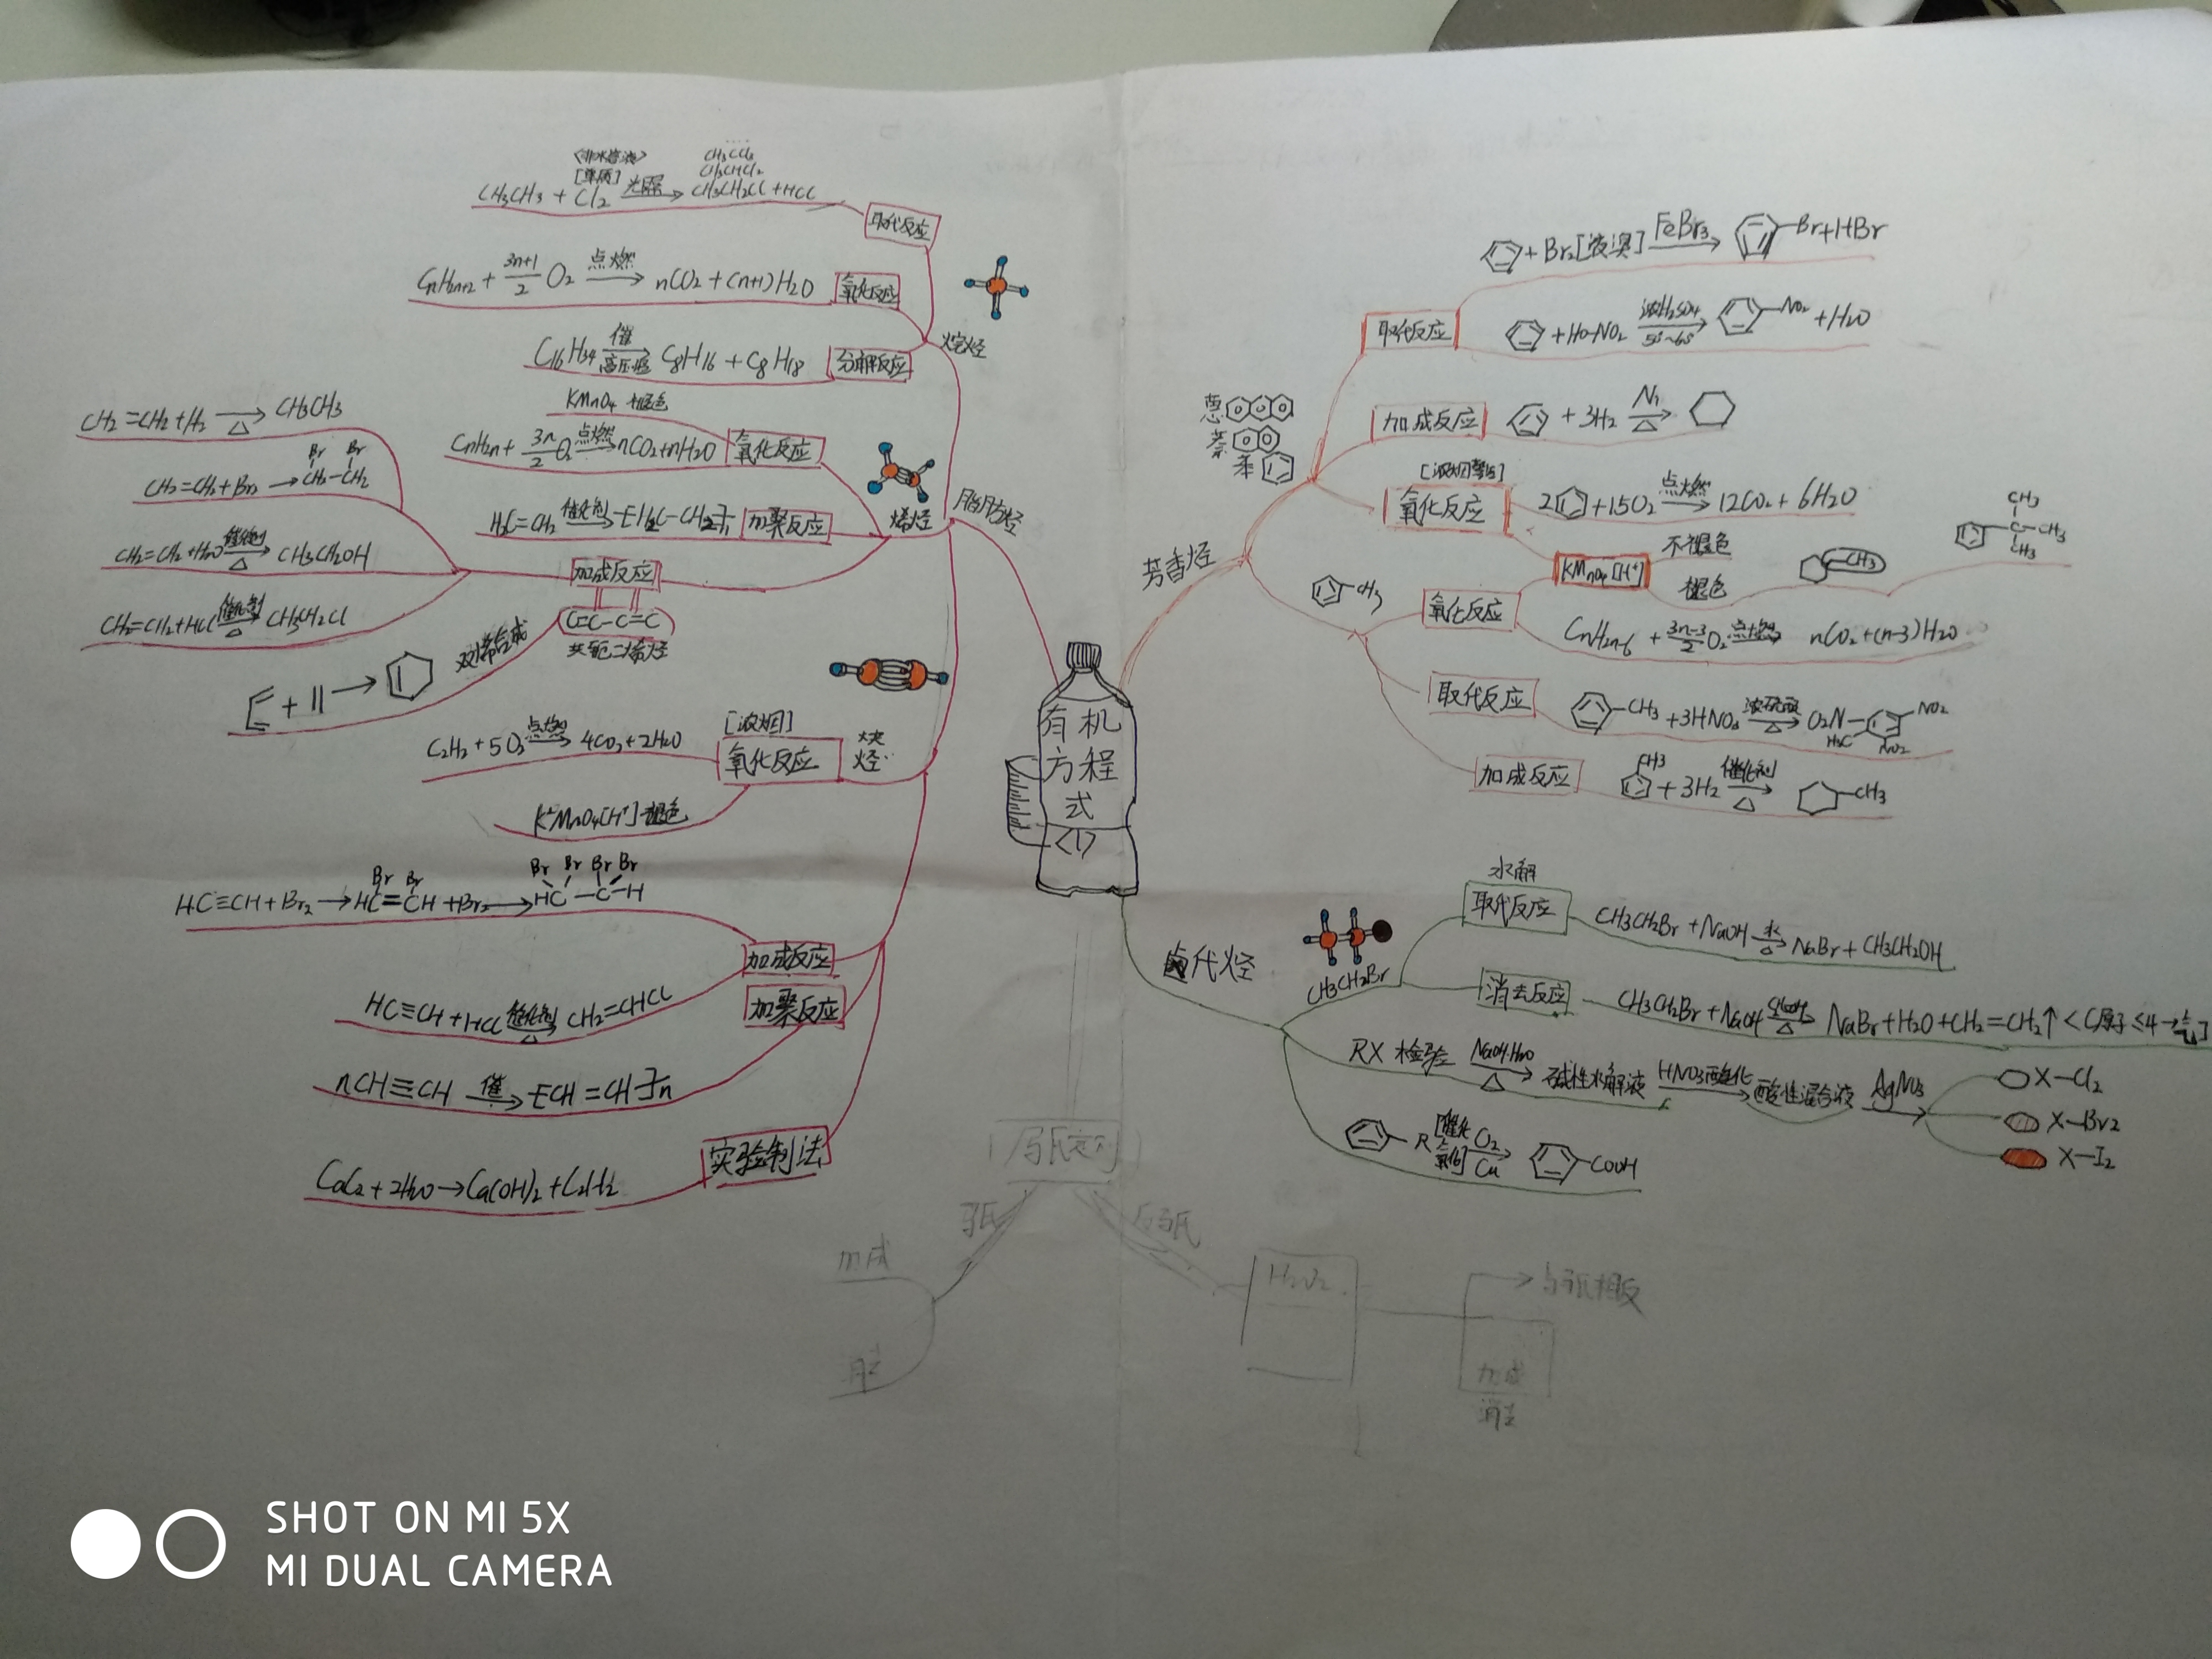 有机
方程
式
<1>
脂肪烃
烷烃
取代反应
<非水溶液>
[单质]
CH3CCl3
CH3CHCl2
CH3CH3 + Cl2 光照→ CH3CH2Cl + HCl
氧化反应
CnH2n+2 + 3n+1/2 O2 点燃→ nCO2 + (n+1)H2O
分解反应
C16H34 催 高压 → C8H16 + C8H18
烯烃
氧化反应
KMnO4 褪色
CnH2n + 3n/2 O2 点燃→ nCO2 + nH2O
加聚反应
H2C=CH2 催化剂→ -[H2C-CH2]n
加成反应
CH2=CH2 + H2 △→ CH3CH3
Br Br
CH2=CH2 + Br2 → CH2-CH2
CH2=CH2 + H2O 催化剂 △→ CH3CH2OH
CH2=CH2 + HCl 催化剂 △→ CH3CH2Cl
C=C-C=C
共轭二烯烃
双烯合成
炔烃
[浓烟]
氧化反应
C2H2 + 5O2 点燃→ 4CO2 + 2H2O
K+MnO4[H+] 褪色
加成反应
Br Br Br Br Br Br
HC≡CH + Br2 → HC=CH + Br2 → HC-C-H
HC≡CH + HCl 催化剂 △→ CH2=CHCl
加聚反应
nCH≡CH 催→ -[CH=CH]n
实验制法
CaC2 + 2H2O → Ca(OH)2 + C2H2
芳香烃
蒽
萘
苯
取代反应
+ Br2[液溴] FeBr3→ Br + HBr
+ HO-NO2 浓H2SO4→ NO2 + H2O
加成反应
+ 3H2 Ni △→
[浓烟]
氧化反应
2 + 15O2 点燃→ 12CO2 + 6H2O
CH3
氧化反应
KMnO4[H+]
不褪色
褪色
CH3
CH3
C-CH3
CH3
CnH2n-6 + 3n-3/2 O2 点燃→ nCO2 + (n-3)H2O
取代反应
CH3 + 3HNO3 浓硫酸 △→ O2N NO2
H3C NO2
加成反应
CH3
+ 3H2 催化剂 △→ CH3
卤代烃
CH3CH2Br
水解
取代反应
CH3CH2Br + NaOH 水 △→ NaBr + CH3CH2OH
消去反应
CH3CH2Br + NaOH △→ NaBr + H2O + CH2=CH2↑ <C原子≤4→气]
RX 检验 NaOH·H2O △→ 碱性水解液 HNO3酸化→ 酸性混合液 AgNO3→
X-Cl2
X-Br2
X-I2
R [催化氧化] O2 Cu→ COOH
马氏
加成
反马氏
H2O2
与马氏相反
加成
消去
SHOT ON MI 5X
MI DUAL CAMERA